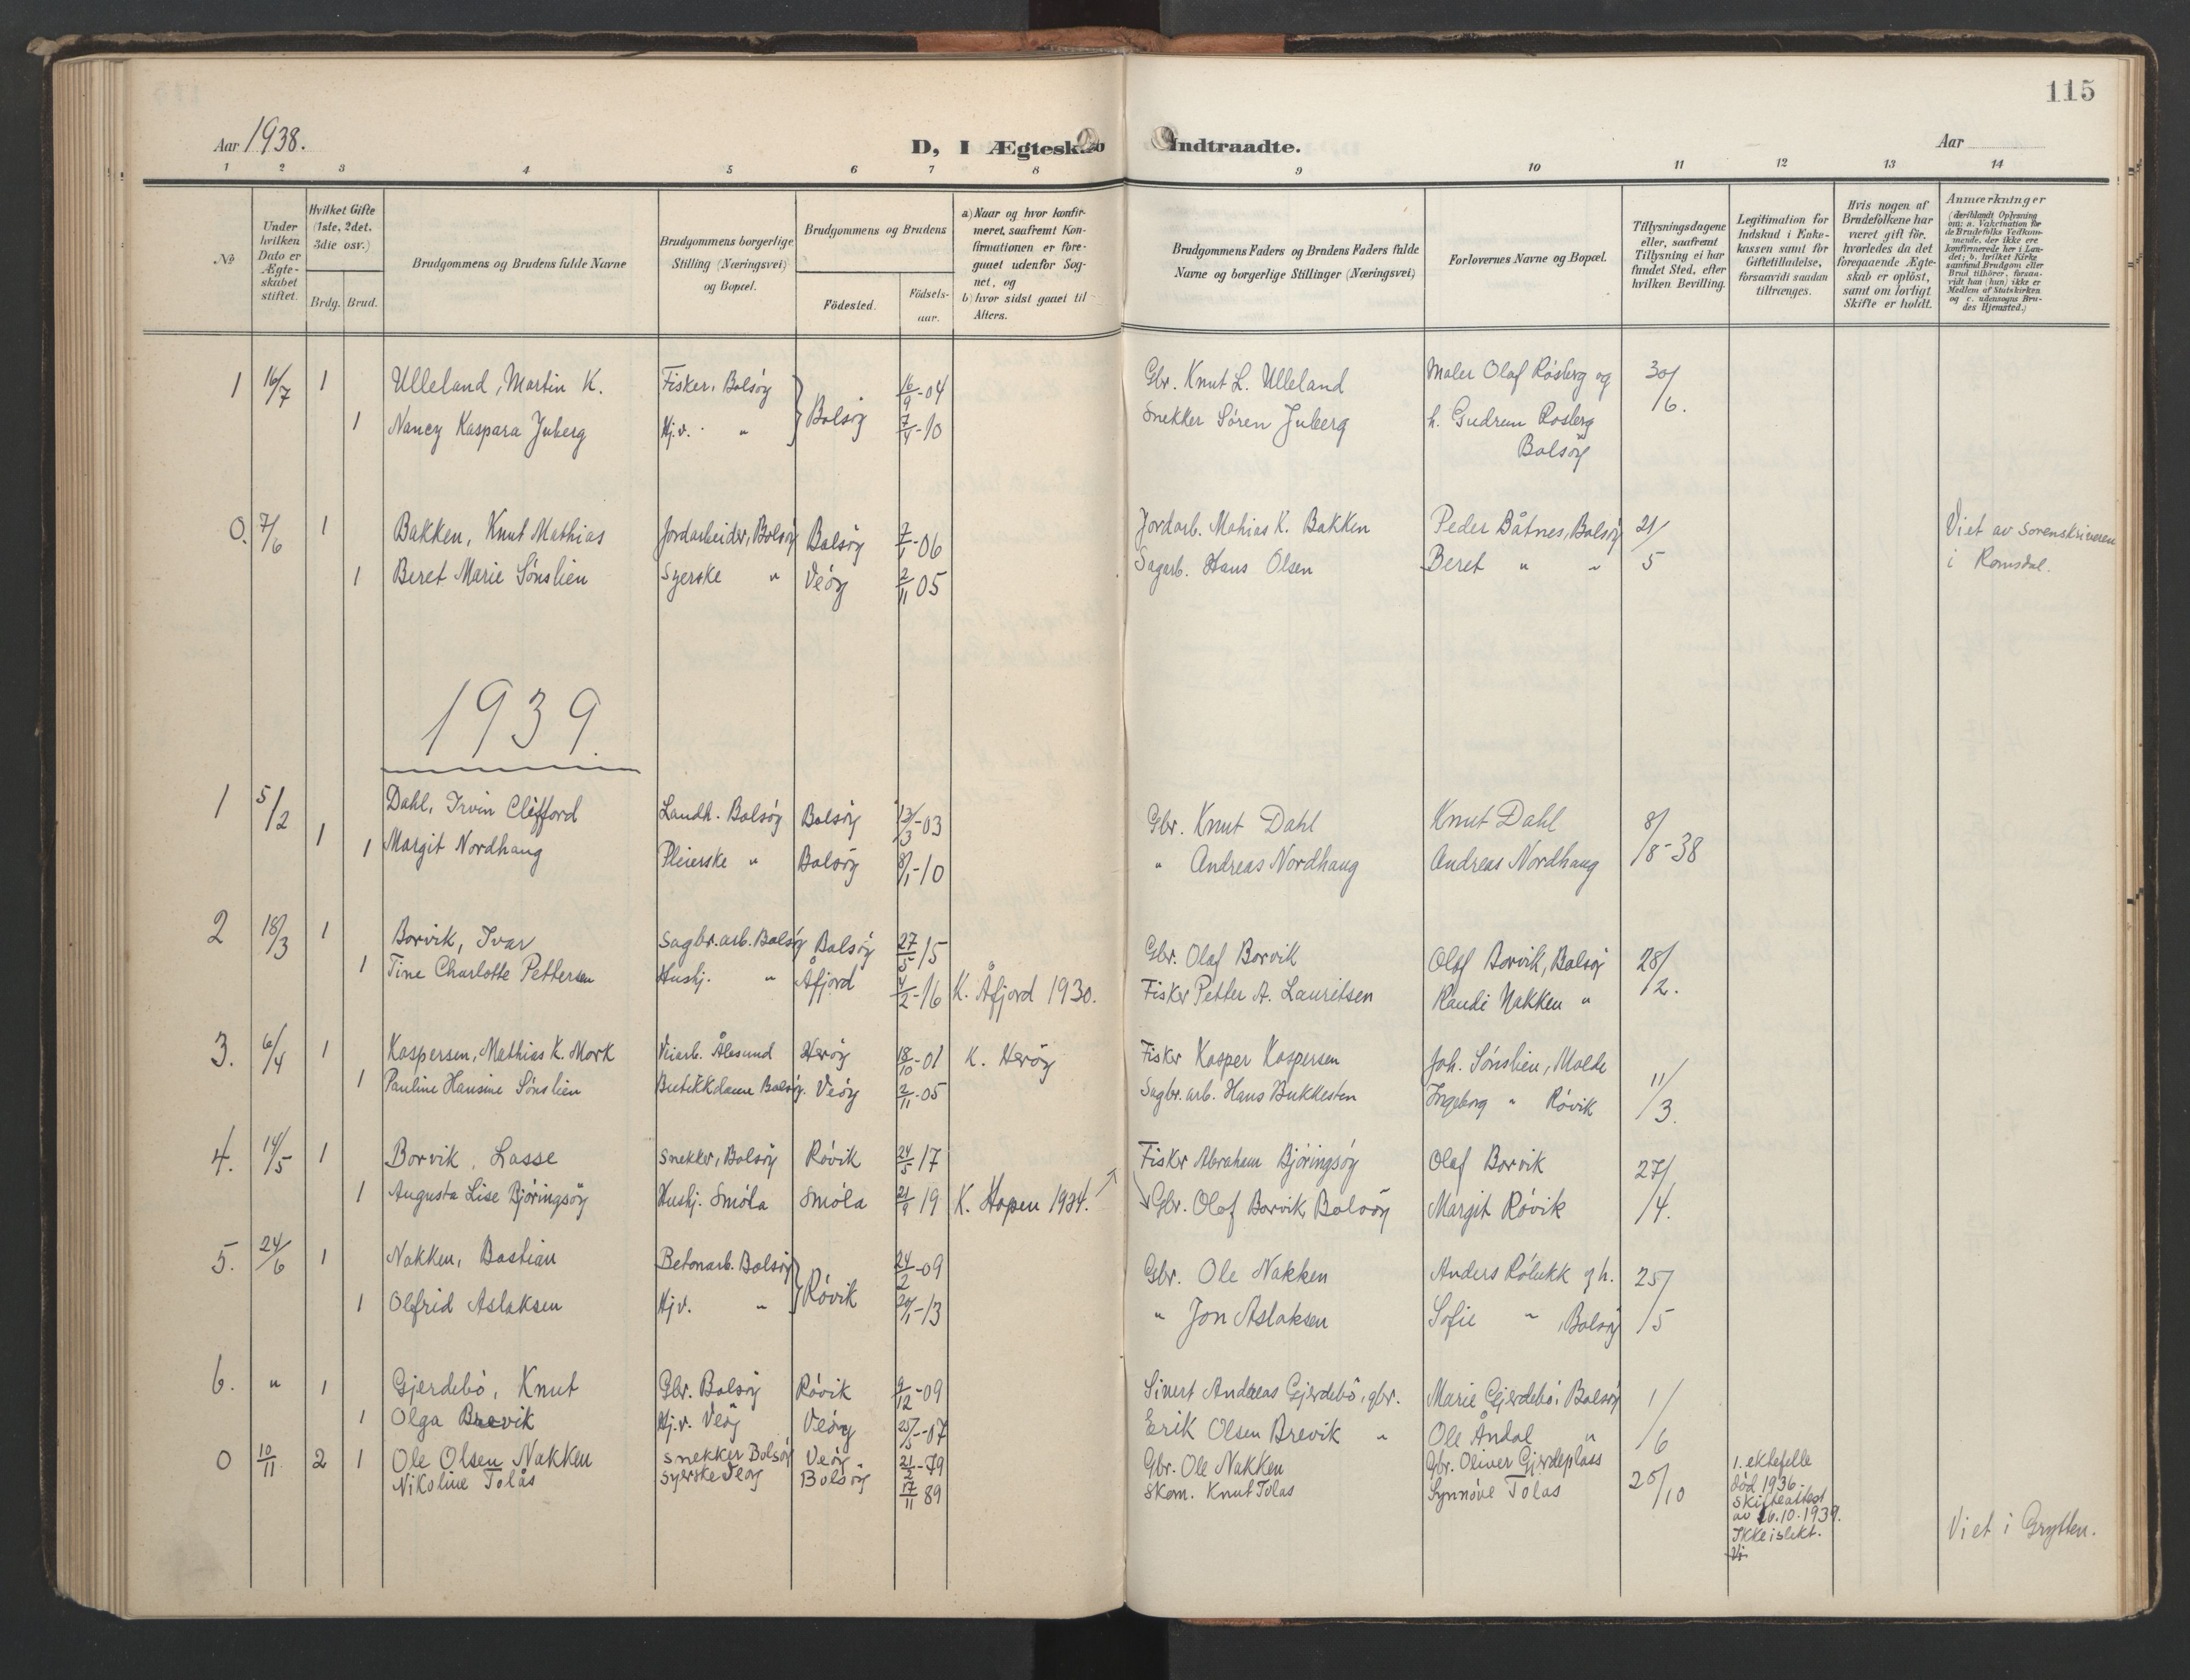 115
Aar 1938.
D, I Ægteskab Indtraadte.
Aar
1 2 3 4 5 6 7 8 9 10 11 12 13 14
No
Under hvilken Dato er Ægteskabet stiftet.
Hvilket Gifte (1ste, 2det. 3die osv.)
Brdg. Brud.
Brudgommens og Brudens fulde Navne
Brudgommens borgerlige Stilling (Næringsvei) og Bopæl.
Brudgommens og Brudens
Födested.
Födsels-aar.
a) Naar og hvor konfirmeret, saafremt Konfirmationen er foregaaet udenfor Sognet, og
b) hvor sidst gaaet til Alters.
Brudgommens Faders og Brudens Faders fulde Navne og borgerlige Stillinger (Næringsvei)
Forlovernes Navne og Bopæl.
Tillysningsdagene eller, saafremt Tillysning ei har fundet Sted, efter hvilken Bevilling.
Legitimation for Indskud i Enkekassen samt for Giftetilladelse, forsaavidt saadan tiltrænges.
Hvis nogen af Brudefolkene har været gift för, hvorledes da det foregaaende Ægteskab er oplöst, samt om lovligt Skifte er holdt.
Anmærkninger
(deriblandt Oplysning om: a. Vakcination for de Brudefolks Vedkommende, der ikke ere konfirmerede her i Landet; b. hvilket Kirkesamfund Brudgom eller Brud tilhörer, forsaavidt han (hun) ikke er Medlem af Statskirken og c. udensogns Brudes Hjemsted.)
1 16/7 1 Ulleland, Martin K. Fisker, Bolsöy } Bolsöy 16/9-04 Gbr. Knut L. Ulleland Maler Olaf Røsberg og 30/6.
1 Nancy Kaspara Juberg Hj.v. " 7/4-10 Snekker Sören Juberg h. Gudrun Rosberg
Bolsöy
0. 7/6 1 Bakken, Knut Mathias Jordarbeider, Bolsöy Bolsöy 7/1-06 Jordarb. Mathias K. Bakken Peder Båtnes, Bolsöy 21/5 Viet av sorenskriveren
1 Beret Marie Sönslien Syerske " Veöy 2/11 05 Sagarb. Hans Olsen Beret " " i Romsdal.
1939.
1 5/2 1 Dahl, Irvin Clifford Landh. Bolsöy Bolsöy 12/3-03 Gbr. Knut Dahl Knut Dahl 8/8-38
1 Margit Nordhaug Pleierske " Bolsöy 8/1-10 " Andreas Nordhaug Andreas Nordhaug
2 18/3 1 Borvik, Ivar Sagbr.arb. Bolsöy Bolsöy 27/5 15 Gbr. Olaf Borvik Olaf Borvik, Bolsöy 28/2.
1 Tine Charlotte Pettersen Hushj. " Åfjord 4/2-16 K. Åfjord 1930. Fisker Petter A. Lauritsen Randi Nakken "
3. 6/4 1 Kaspersen, Mathias K. Mork Veiarb. Ålesund Heröy 18/10-01 K. Heröy Fisker Kasper Kaspersen Joh. Sönslien, Molde 11/3.
1 Pauline Hansine Sönslien Butikkdame Bolsöy. Veöy 2/11-05 Sagbr.arb. Hans Bukkesten Ingeborg " Rövik
4. 14/5 1 Borvik, Lasse Snekker, Bolsöy Rövik 24/5-17 Fisker Abraham Björingsöy Olaf Borvik 27/4.
1 Augusta Lise Björingsöy Hushj. Smöla Smöla 21/9 19 K. Hopen 1934. Gbr. Olaf Borvik, Bolsöy Margit Rövik
5. 24/6 1 Nakken, Bastian Betonarb. Bolsöy } Rövik 24/2-09 Gbr. Ole Nakken Anders Rölukk g h. 25/5
1 Olfrid Aslaksen Hjv. " 20/1-13 " Jon Aslaksen Sofie " , Bolsöy
6. " 1 Gjerdebö, Knut Gbr. Bolsöy Rövik 9/12-09 Sivert Andreas Gjerdebö, gbr. Marie Gjerdebö, Bolsöy 1/6
1 Olga Brevik Hj.v. Veöy Veöy 25/5-07 Erik Olsen Brevik " Ole Åndal "
0 10/11 2 1 Ole Olsen Nakken Snekker Bolsöy Veöy 21/2-79 Gbr. Ole Nakken Gbr. Oliver Gjerdeplass 20/10 1. ektefelle
Nikoline Tolås Syerske Veöy Bolsöy 17/11 89 Skom. Knut Tolås Synnöve Tolås död 1936.
Skifteattest
av 26.10.1939.
Ikke i slekt.
Viet i Grytten.